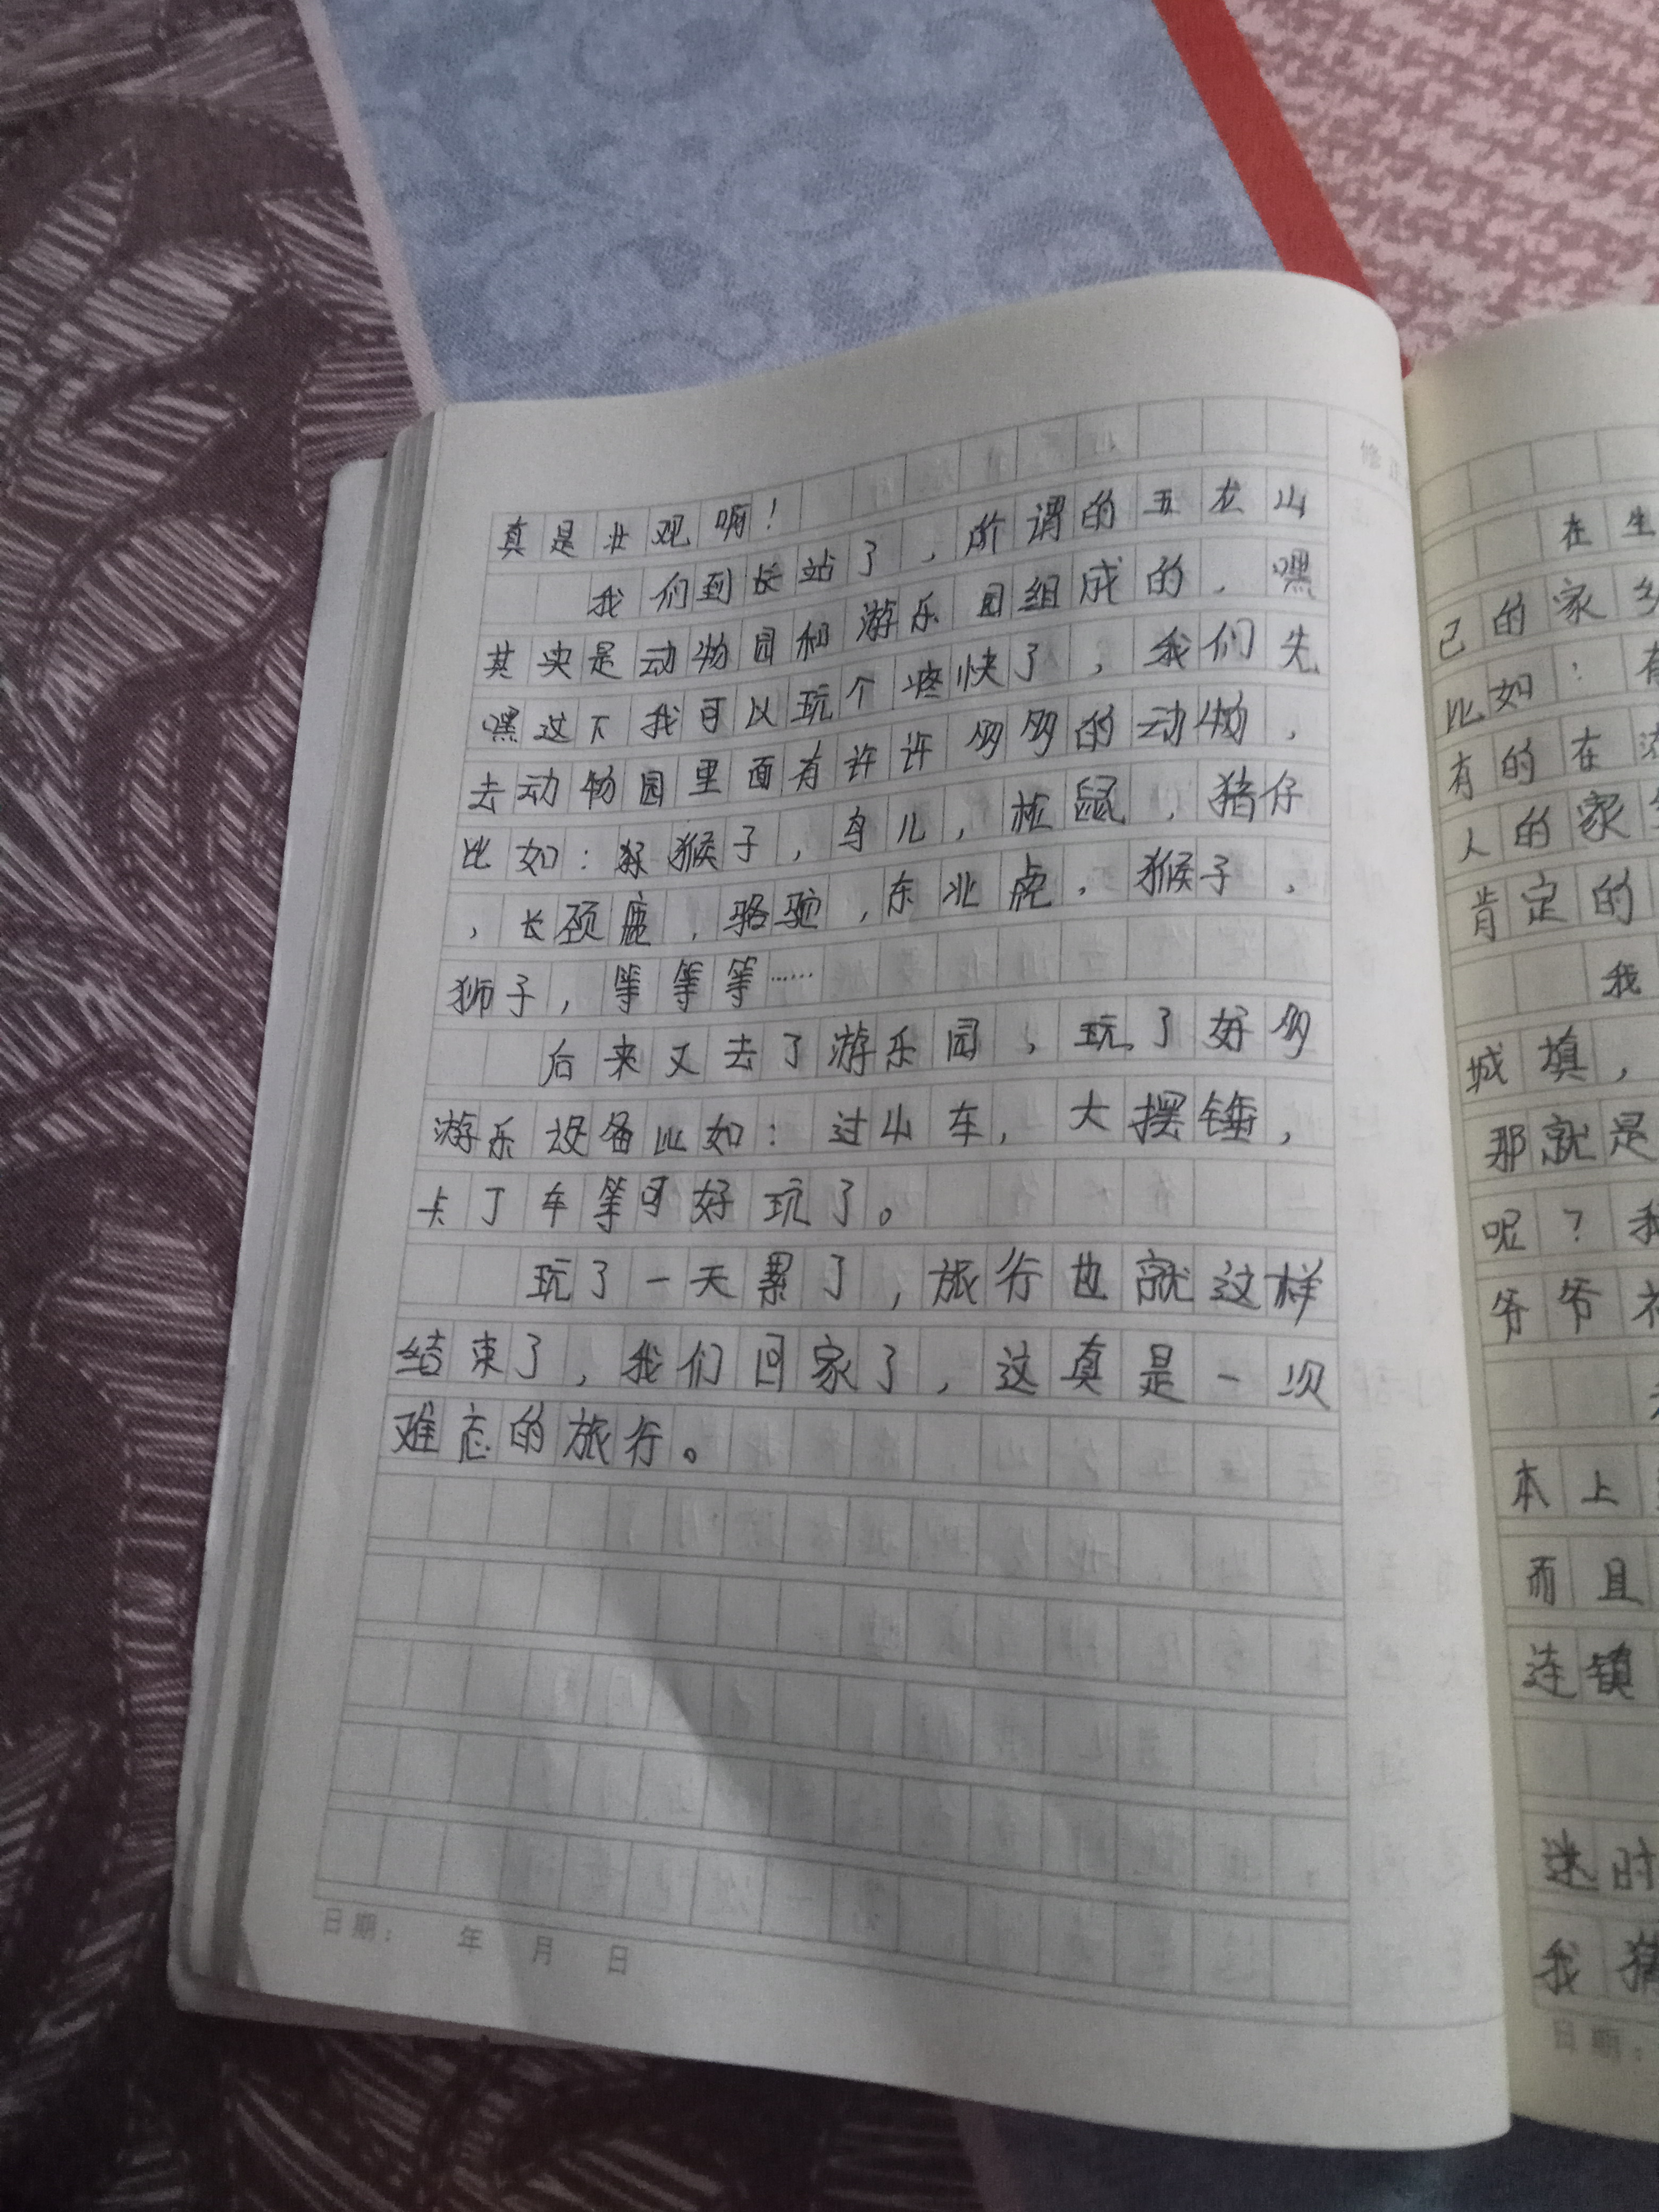 真是壮观啊!
我们到长站了,所谓的五龙山
其实是动物园和游乐园组成的,嘿
嘿这下我可以玩个疼快了,我们先
去动物园里面有许许多多的动物,
比如:猴子,鸟儿,松鼠,猪仔
,长颈鹿,骆驼,东北虎,猴子,
狮子,等等等……
后来又去了游乐园,玩了好多
游乐设备比如:过山车,大摆锤,
卡丁车等可好玩了。
玩了一天累了,旅行也就这样
结束了,我们回家了,这真是一次
难忘的旅行。
日期: 年 月 日
修正
在生
己的家乡
比如:有
有的在
人的家
肯定的
我
城填,
那就是
呢?我
爷爷
本上
而且
连镇
迷时
我猜
日期: